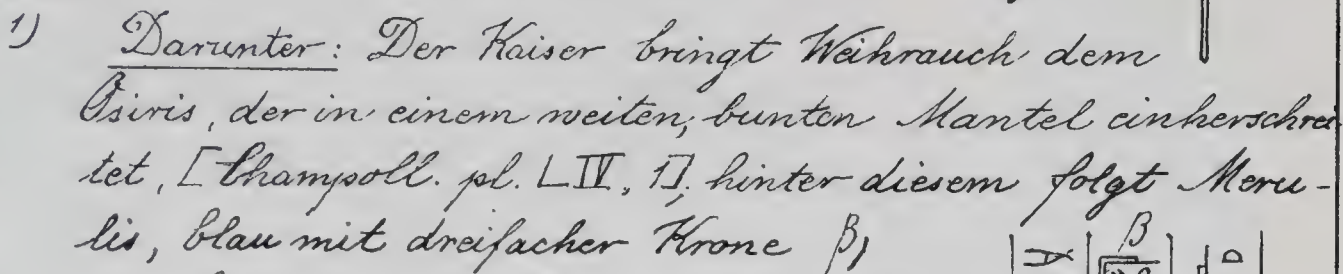 1) Darunter: Der Kaiser bringt Weihrauch dem
Osiris, der in einem weiten, bunten Mantel einherschrei
tet, [Champoll. pl. LIV, 1], hinter diesem folgt Meru-
lis, blau mit dreifacher Krone β,
β